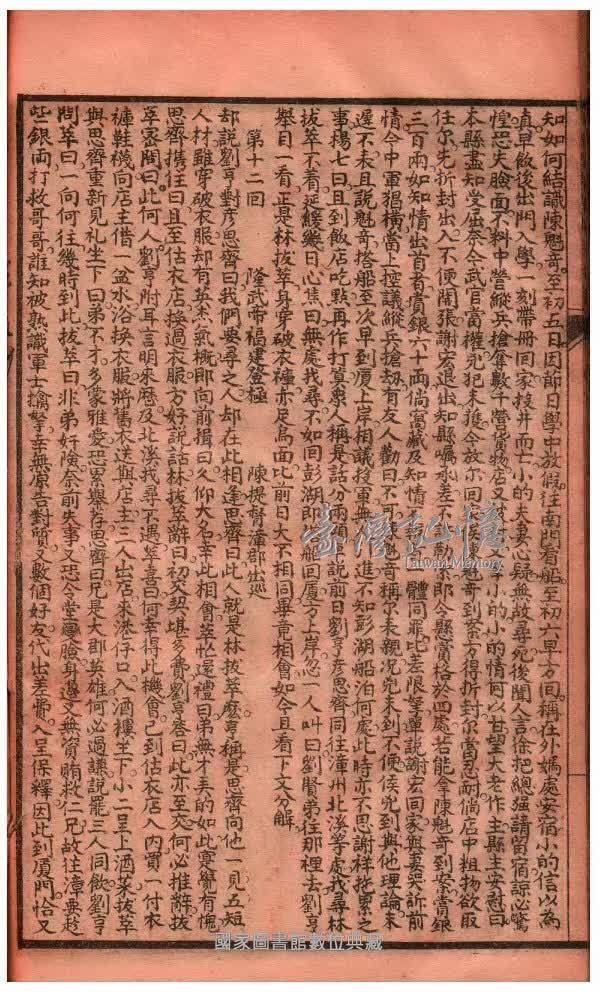 知如何結識陳魁奇至初五日因節日學中放假往南門看船至初六早方回稱在外媽處安宿小的信以為
真早飯後出門入學一刻帶冊回家投井而亡小的夫妻心疑無故尋死後聞人言徐把總强請留宿諒必驚
惶恐失臉面不料中營縱兵搶奪數千營員貨物店又小的小的情何以甘望大老作主縣主安慰曰
本縣盡知受屈奈今武官當權兇犯未獲今放尔回去候魁奇到案方得折封尔當忍耐倘店中粗物欲取
任尔先折封出入不便鬧張謝宏退出知縣囑承差不勒索即令懸賞格於四處若能拿陳魁奇到案賞銀
三百兩如知情出首者賞銀六十兩倘窩藏及知情體同罪比差限拏單說謝宏回家與妻哭訴前
情令中軍猖橫當上控議縱兵搶劫有友人勸曰不可陳魁奇稱尔表親兇未到不便候先到與他理論末
遲不未且說魁奇搭船至次早到厦上岸相議投軍無進不知彭湖船泊何處此時亦不思謝祥拖累之
事楊七曰且到飯店吃點再作打算眾人稱是話分兩頭且說前日劉亨彦思齊同往漳州北溪等處找尋林
拔萃不着延緩幾日心焦曰無處找尋不如回彭湖即搭船回厦方上岸忽一人叫曰劉賢弟往那裡去劉亨
舉目一看正是林拔萃身穿破衣褲亦足烏面比前日大不相同畢竟相會如何且看下文分解
第十二回　隆武帝福建登極　陳提督漳郡出巡
却說劉亨對彦思齊曰我們要尋之人却在此相逢思齊曰此人就是林拔萃麽亨稱是思齊向他一見五短
人材雖穿破衣服却有英杰氣概即向前揖曰久仰大名幸此相會萃忙還禮曰弟無才美的如此寔覺有愧
思齊携往曰且至估衣店換過衣服方好說話林拔萃辭曰初交契堪多費劉亨答曰此亦至交何必推辭拔
萃密問曰此何人劉亨附耳言明來歷及北溪找尋不遇萃喜曰何幸得此機會已到估衣店入內買一付衣
褲鞋襪向店主借一盆水浴換衣服將舊衣送與店主三人出店來港仔口入酒樓坐下小二呈上酒菜拔萃
與思齊重新見礼坐下曰弟不才多蒙雅愛恐累舉荐思齊曰兄是大郡英雄何必過謙說罷三人同飲劉亨
問萃曰一向何往幾時到此拔萃曰非弟奸險奈前失事又恐令堂懮臉身邊又無資賄救仁兄故往漳要趁
些銀両打救哥哥誰知被熟識軍士擒拏幸無原告對質又數個好友代出差費入呈保釋因此到厦門恰又
臺灣記憶
Taiwan Memory
國家圖書館數位典藏